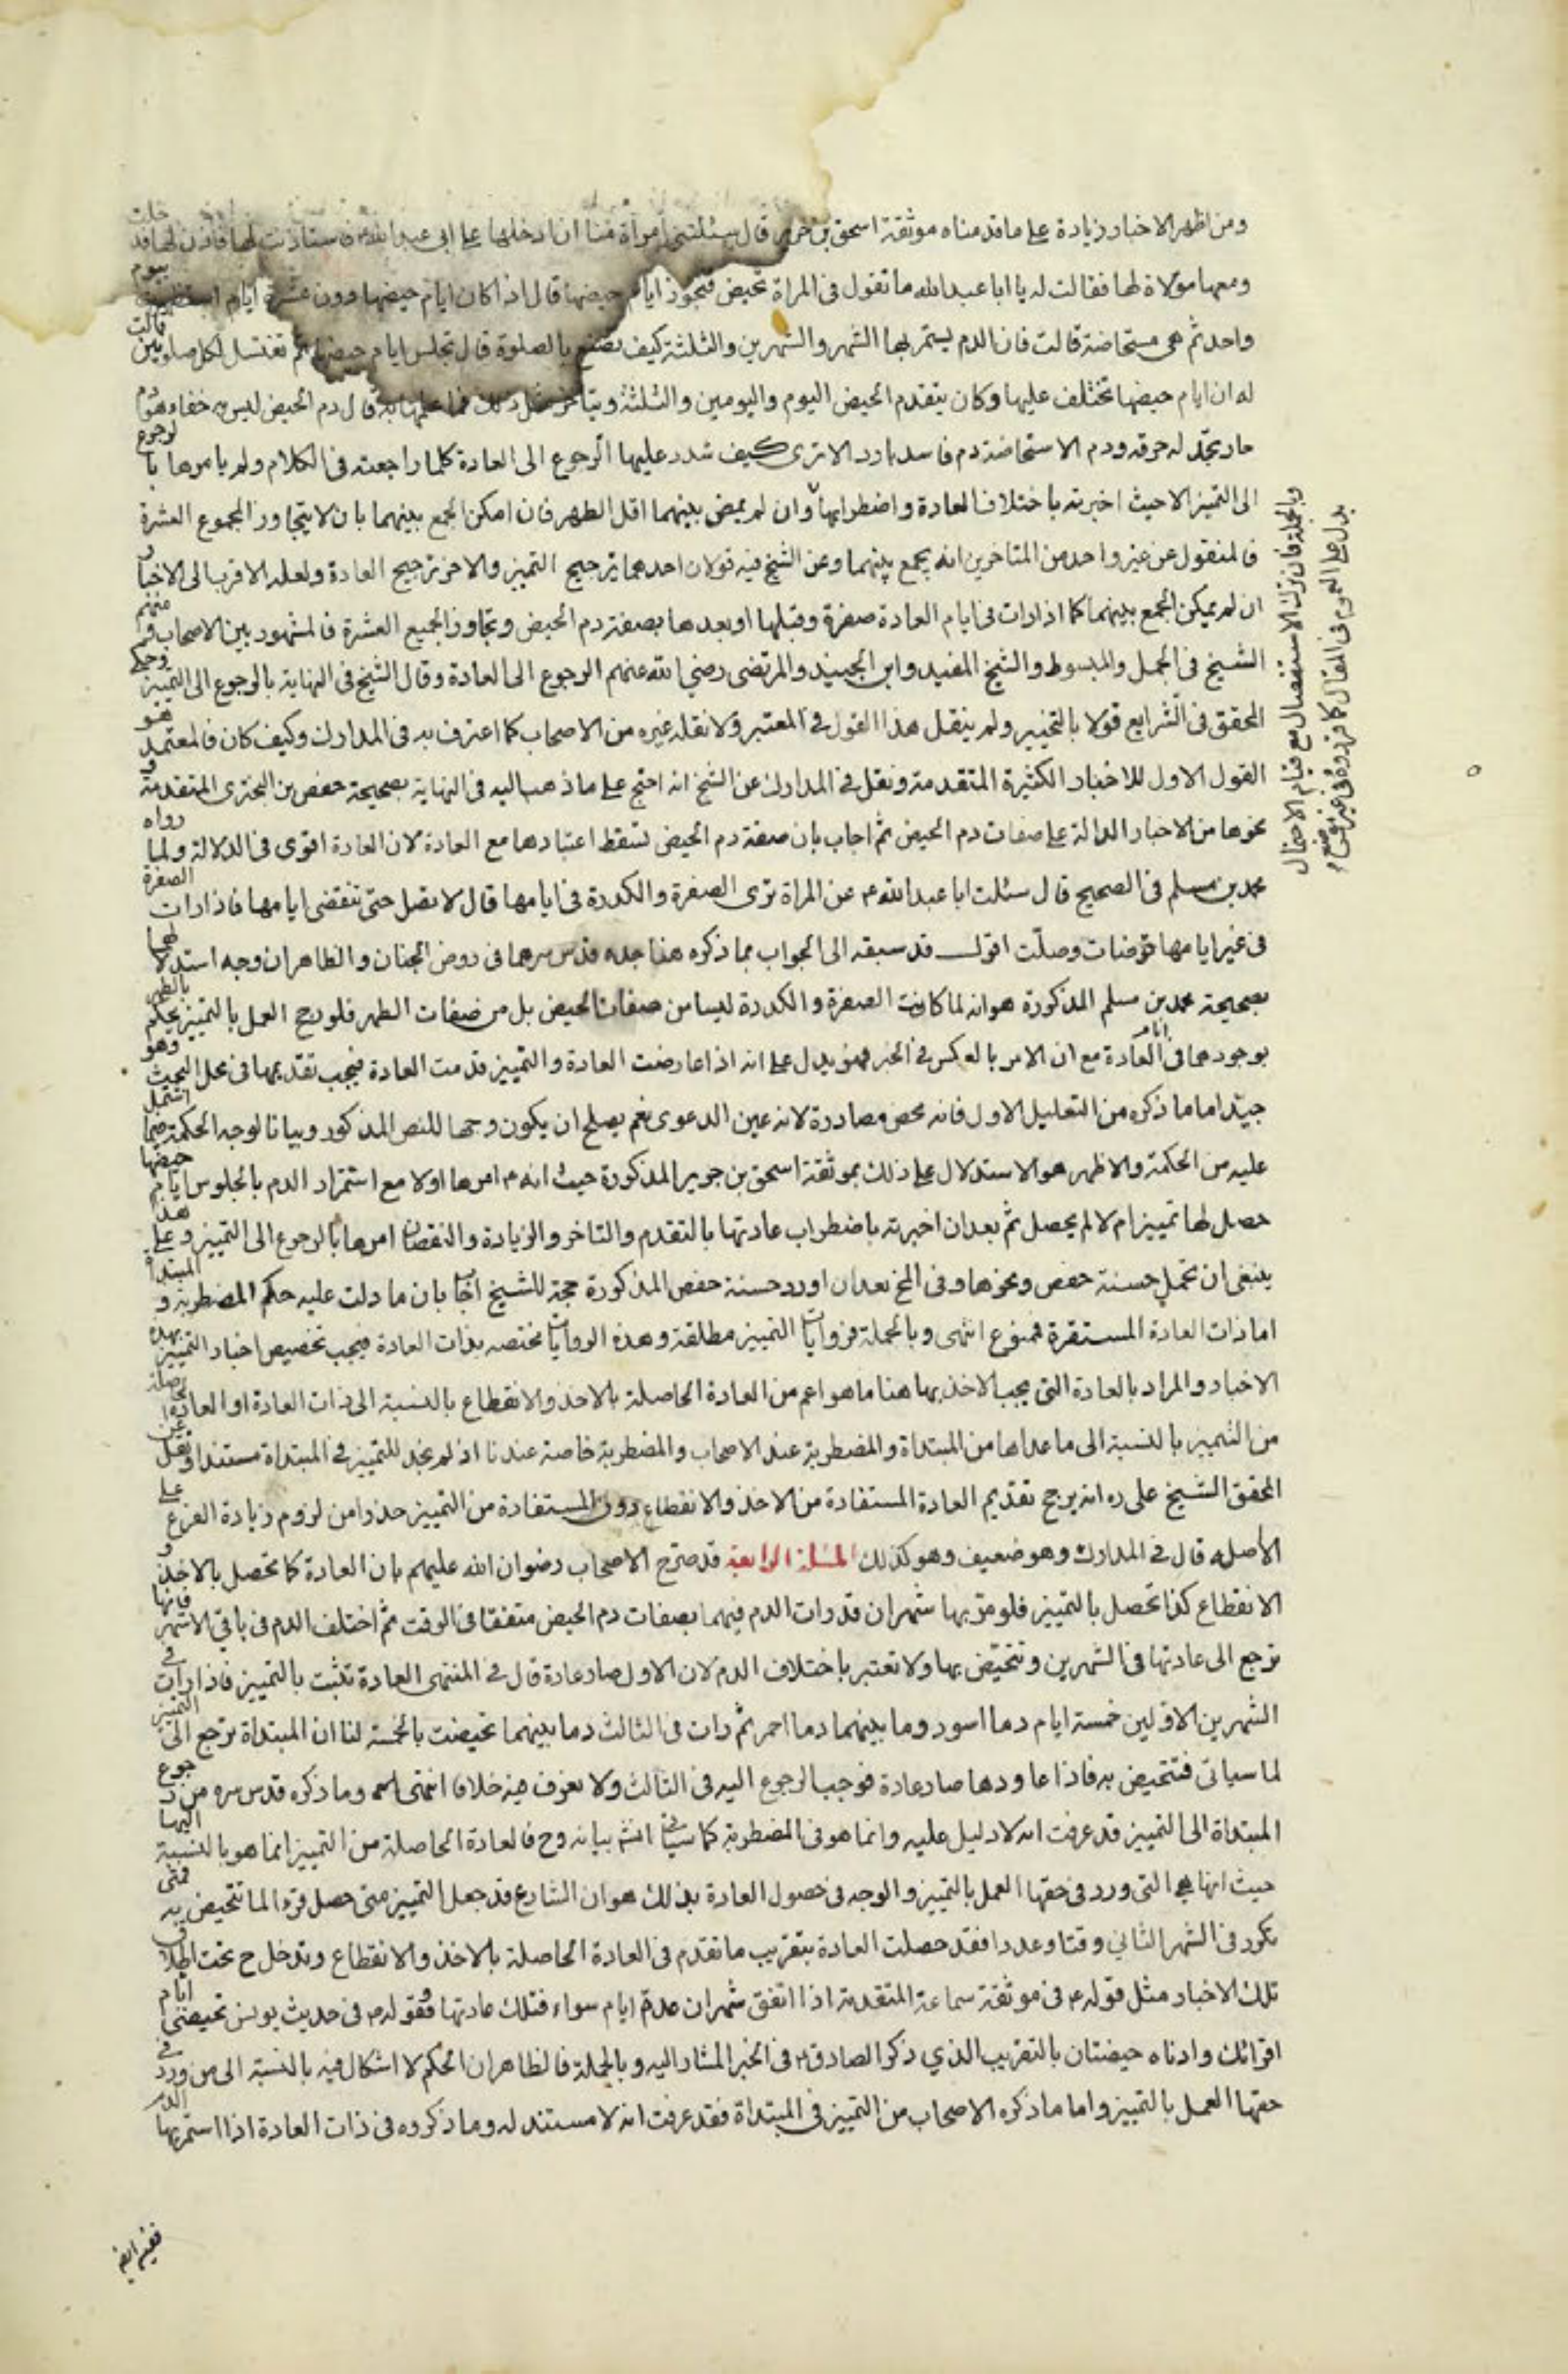 ومن اظهر الاخبار زيادة على ما قدمناه موثقة اسحق بن جرير قال سئلتني امرأة منا ان ادخلها على ابي عبد الله فاستأذنت لها فاذن لها فدخلت
ومعها مولاة لها فقالت له يا ابا عبد الله ما تقول في المراة تحيض فتجوز ايام حيضها قال اذا كان ايام حيضها دون عشرة ايام استظهرت بيوم
واحد ثم هي مستحاضة قالت فان الدم يستمر بها الشهر والشهرين والثلثة كيف تصنع بالصلوة قال تجلس ايام حيضها ثم تغتسل لكل صلوتين قالت
له ان ايام حيضها تختلف عليها وكان يتقدم الحيض اليوم واليومين والثلثة ويتاخر مثل ذلك فما علمها به قال دم الحيض ليس به خفاء هو دم
حار تجد له حرقة ودم الاستحاضة دم فاسد بارد الا ترى كيف شدد عليها الرجوع الى العادة كلما راجعته في الكلام ولم يامرها بالرجوع
الى التميز الا حيث اخبرته باختلاف العادة واضطرابها وان لم يمض بينهما اقل الطهر فان امكن الجمع بينهما بان لا يتجاوز المجموع العشرة
فالمنقول عن غير واحد من المتاخرين انه يجمع بينهما وعن الشيخ فيه قولان احدهما ترجيح التميز والاخر ترجيح العادة ولعله الاقرب الى الاخبار و
ان لم يمكن الجمع بينهما كما اذا رات في ايام العادة صفرة وقبلها او بعدها بصفة دم الحيض وتجاوز الجميع العشرة فالمشهور بين الاصحاب ومنهم
الشيخ في الجمل والمبسوط والشيخ المفيد وابن الجنيد والمرتضى رضي الله عنهم الرجوع الى العادة وقال الشيخ في النهاية بالرجوع الى التميز وحكى
المحقق في الشرايع قولا بالتخيير ولم ينقل هذا القول في المعتبر ولا نقله غيره من الاصحاب كما اعترف به في المدارك وكيف كان فالمعتمد هو
القول الاول للاخبار الكثيرة المتقدمة ونقل في المدارك عن الشيخ انه احتج على ما ذهب اليه في النهاية بصحيحة حفص بن البختري المتقدمة و
نحوها من الاخبار الدالة على صفات دم الحيض ثم اجاب بان صفة دم الحيض تسقط اعتبارها مع العادة لان العادة اقوى في الدلالة ولما رواه
محمد بن مسلم في الصحيح قال سئلت ابا عبد الله ع عن المراة ترى الصفرة والكدرة في ايامها قال لا تصل حتى تنقضي ايامها فاذا رات الصفرة
في غير ايامها توضات وصلت اقول قد سبقه الى الجواب بما ذكره هنا جده قدس سرهما في روض الجنان والظاهر ان وجه استدلالهما
بصحيحة محمد بن مسلم المذكورة هو انه لما كانت الصفرة والكدرة ليسا من صفات الحيض بل من صفات الطهر فلو رجح العمل بالتمييز لحكم بالطهر
بوجودهما في ايام العادة مع ان الامر بالعكس في الخبر فهو يدل على انه اذا عارضت العادة والتمييز قدمت العادة فيجب تقديمها في محل البحث وهو
جيد اما ما ذكره من التعليل الاول فانه محض مصادرة لانه عين الدعوى نعم يصلح ان يكون وجها للنص المذكور وبيانا لوجه الحكمة فيما اشتمل
عليه من الحكمة والاظهر هو الاستدلال على ذلك بموثقة اسحق بن جرير المذكورة حيث انه ع امرها اولا مع استمرار الدم بالجلوس ايام حيضها
حصل لها تمييز ام لا لم يحصل ثم بعد ان اخبرته باضطراب عادتها بالتقدم والتاخر والزيادة والنقصان امرها بالرجوع الى التمييز وعلى هذا
ينبغي ان تحمل حسنة حفص ونحوها وفي المخ بعد ان اورد حسنة حفص المذكورة حجة للشيخ اجاب بان ما دلت عليه حكم المضطربة والمبتداة
اما ذات العادة المستقرة فممنوع انتهى وبالجملة فروايات التمييز مطلقة وهذه الروايات مختصه بذات العادة فيجب تخصيص اخبار التمييز بهذه
الاخبار والمراد بالعادة التي يجب الاخذ بها هنا ما هو اعم من العادة الحاصلة بالاخذ والانقطاع بالنسبة الى ذات العادة او العادة الحاصلة
من التمييز بالنسبة الى ما عداها من المبتداة والمضطربة عند الاصحاب والمضطربة خاصة عندنا اذ لم نجد للتمييز في المبتداة مستندا ونقل عن
المحقق الشيخ علي ره انه يرجح تقديم العادة المستفادة من الاخذ والانقطاع دون المستفادة من التمييز حذرا من لزوم زيادة الفرع على
الأصل قال في المدارك وهو ضعيف وهو كذلك المسئلة الرابعة قد صرح الاصحاب رضوان الله عليهم بان العادة كما تحصل بالاخذ و
الانقطاع كذا تحصل بالتمييز فلو مر بها شهران قد رات الدم فيهما بصفات دم الحيض متفقا في الوقت ثم اختلف الدم في باقي الاشهر فانها
ترجع الى عادتها في الشهرين وتتحيض بها ولا تعتبر باختلاف الدم لان الاول صار عادة قال في المنتهى العادة تثبت بالتمييز فاذا رات في
الشهرين الاولين خمسة ايام دما اسود وما بينهما دما احمر ثم رات في الثالث دما بينهما تحيضت بالخمسة لنا ان المبتداة ترجع الى التمييز
لما سياتي فتتحيض به فاذا عاودها صار عادة فوجب الرجوع اليه في الثالث ولا نعرف فيه خلافا انتهى وما ذكره قدس سره من رجوع
المبتداة الى التمييز قد عرفت انه لا دليل عليه وانما هو في المضطربة كما سياتي انش بيانه وح فالعادة الحاصلة من التمييز انما هو بالنسبة اليها
حيث انها هي التي ورد في حقها العمل بالتمييز والوجه في حصول العادة بذلك هو ان الشارع قد جعل التمييز متى حصل قرءا لما تتحيض به فمتى
تكرر في الشهر الثاني وقتا وعددا فقد حصلت العادة بتقريب ما تقدم في العادة الحاصلة بالاخذ والانقطاع وتدخل ح تحت اطلاق
تلك الاخبار مثل قوله ع في موثقة سماعة المتقدمة اذا اتفق شهران عدة ايام سواء فتلك عادتها فقوله ع في حديث يونس تحيضي ايام
اقرائك وادناه حيضتان بالتقريب الذي ذكر الصادق ع في الخبر المشار اليه وبالجملة فالظاهر ان الحكم لا اشكال فيه بالنسبة الى من ورد في
حقها العمل بالتمييز واما ما ذكره الاصحاب من التمييز في المبتداة فقد عرفت انه لا مستند له وما ذكروه في ذات العادة اذا استمر بها الدم
وبالجملة فان ترك الاستفصال مع قيام الاحتمال
يدل على العموم في المقال كما قرروه في غير مقام